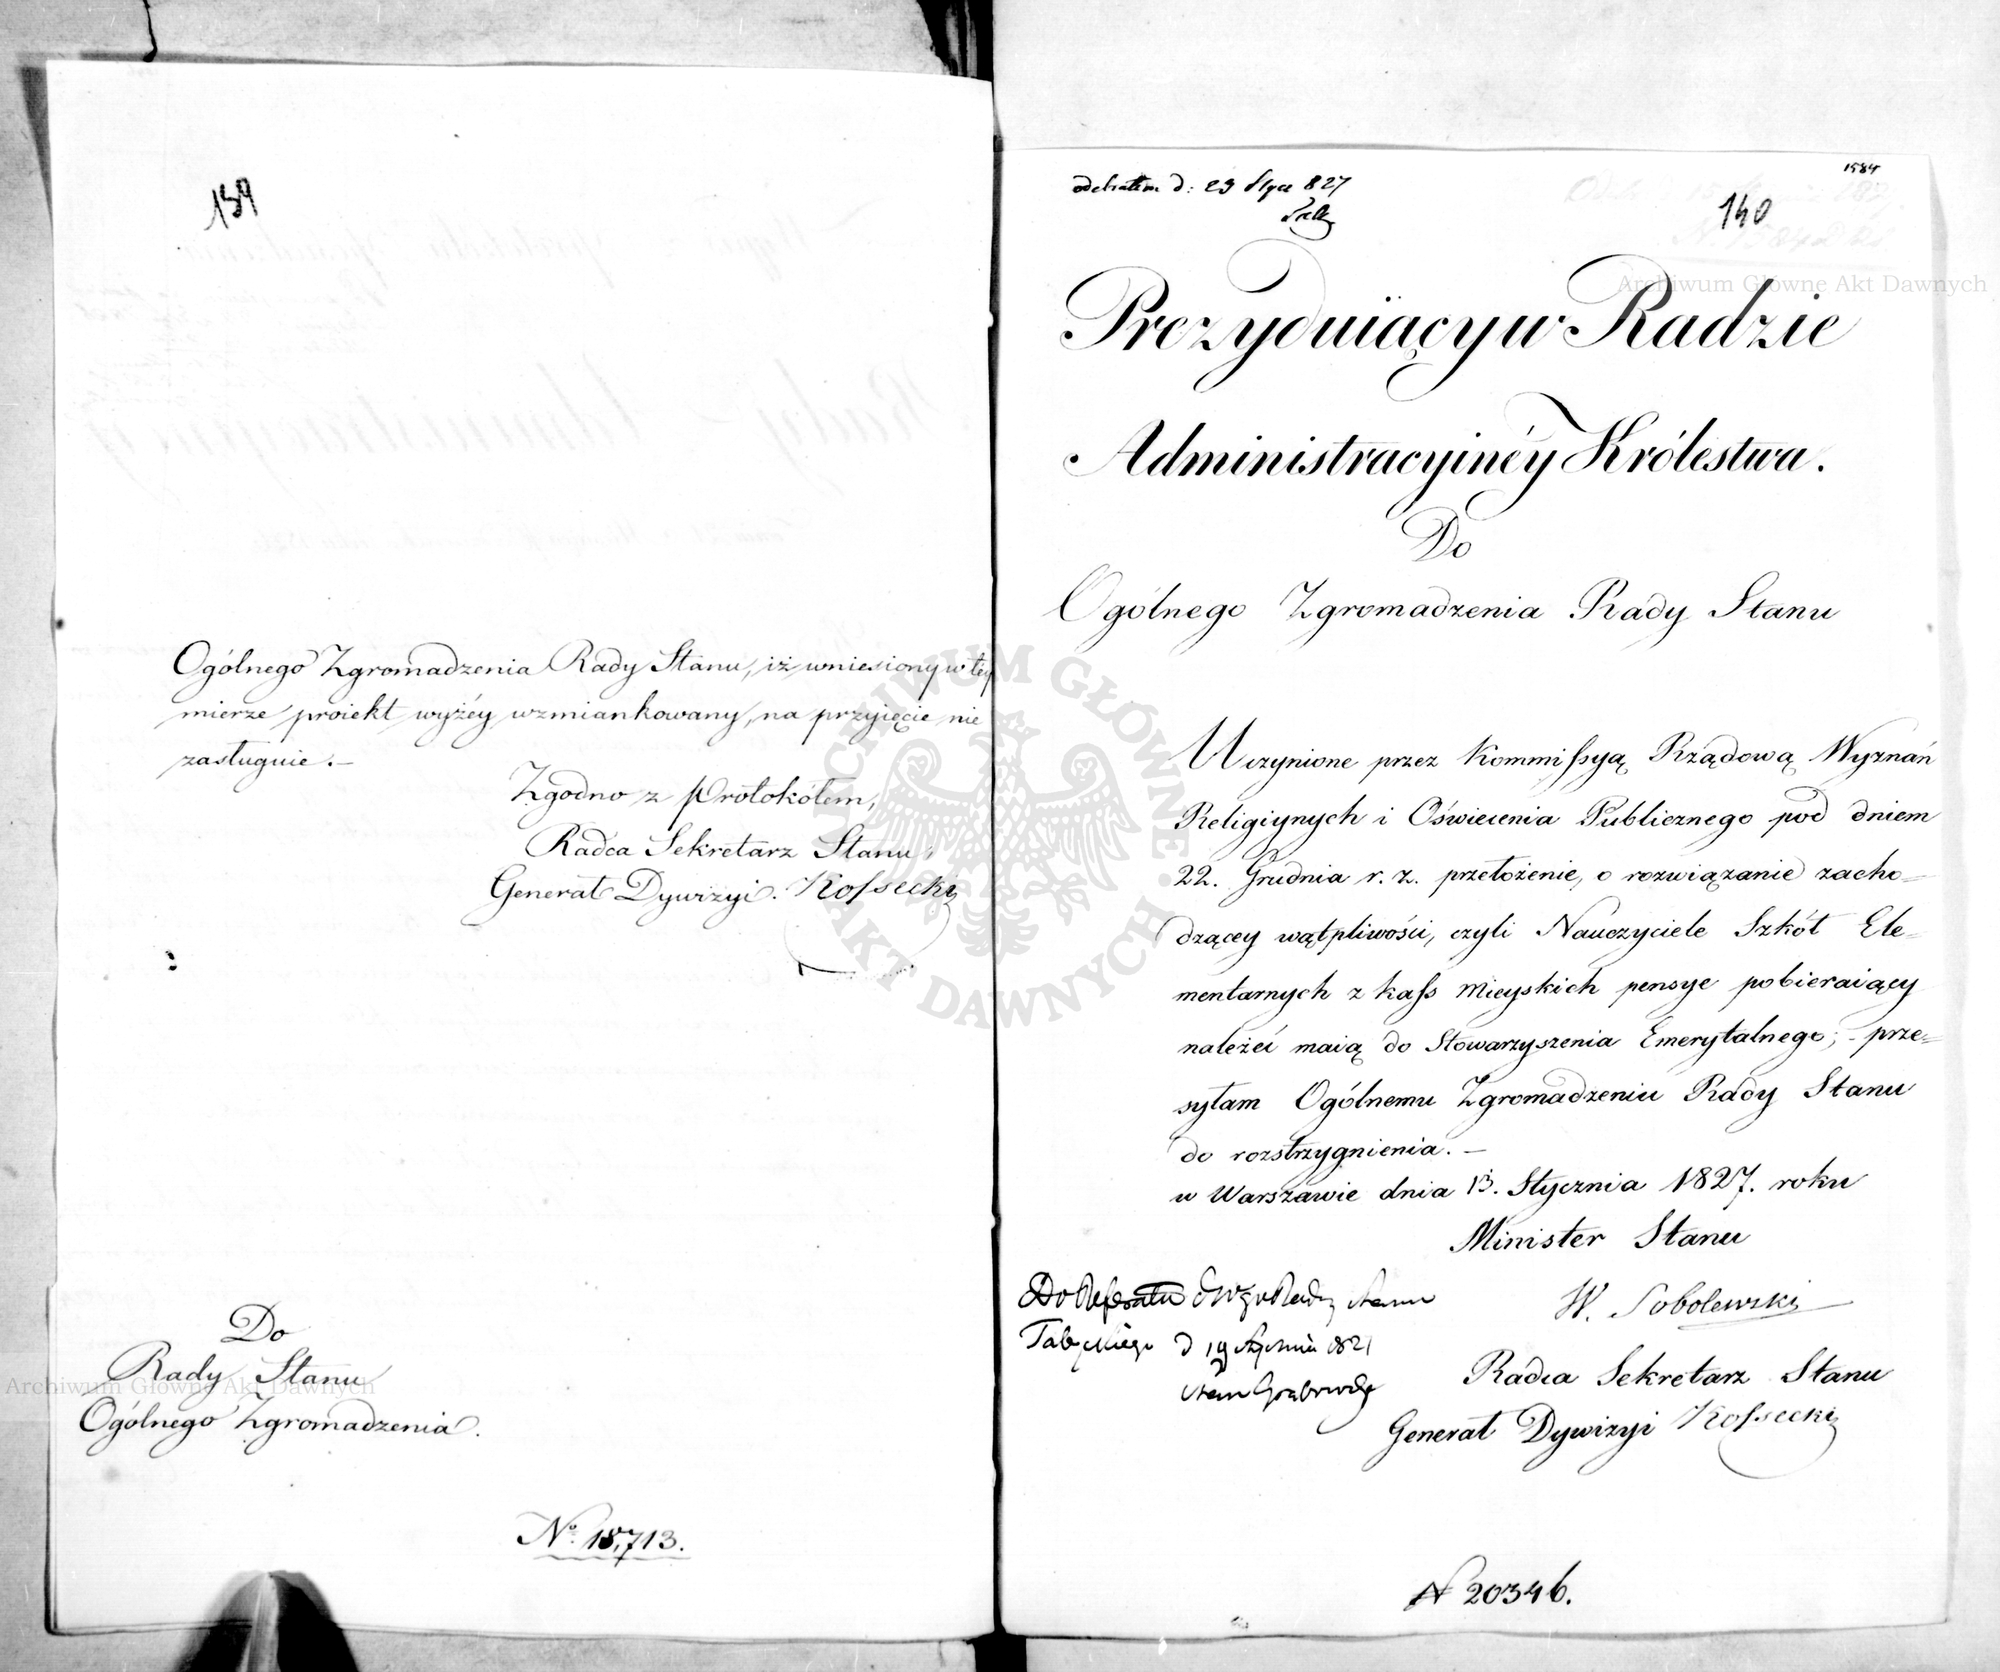 139
Ogólnego Zgromadzenia Rady Stanu, iż wniesiony w tey
mierze proiekt wyżéy wzmiankowany, na przyjęcie nie
zasługuie.—
Zgodno z Protokółem,
Radca Sekretarz Stanu,
Generał Dywizyi. Kossecki
Do
Rady Stanu
Ogólnego Zgromadzenia.
No 18,713.
1584
odebrałem d: 23 Stycz 827
140
Prezyduiący w Radzie
Administracyinéy Królestwa.
Do
Ogólnego Zgromadzenia Rady Stanu
Uczynione przez Kommissyą Rządową Wyznań
Religiynych i Oświecenia Publicznego pod dniem
22. Grudnia r. z. przełożenie, o rozwiązanie zacho=
dzącey wątpliwości, czyli Nauczyciele Szkół Ele=
mentarnych z kass Mieyskich pensye pobieraiący
należéć maią do Stowarzyszenia Emerytalnego; - prze=
syłam Ogólnemu Zgromadzeniu Rady Stanu
do rozstrzygnienia. —
w Warszawie dnia 13. Stycznia 1827. roku
Minister Stanu
W. Sobolewski
Do Referatu Radcy Stanu
d 19 Stycznia 1827
Radca Sekretarz Stanu
Generał Dywizyi Kossecki
N 20346.
Archiwum Główne Akt Dawnych
Archiwum Główne Akt Dawnych
ARCHIWUM GŁÓWNE AKT DAWNYCH